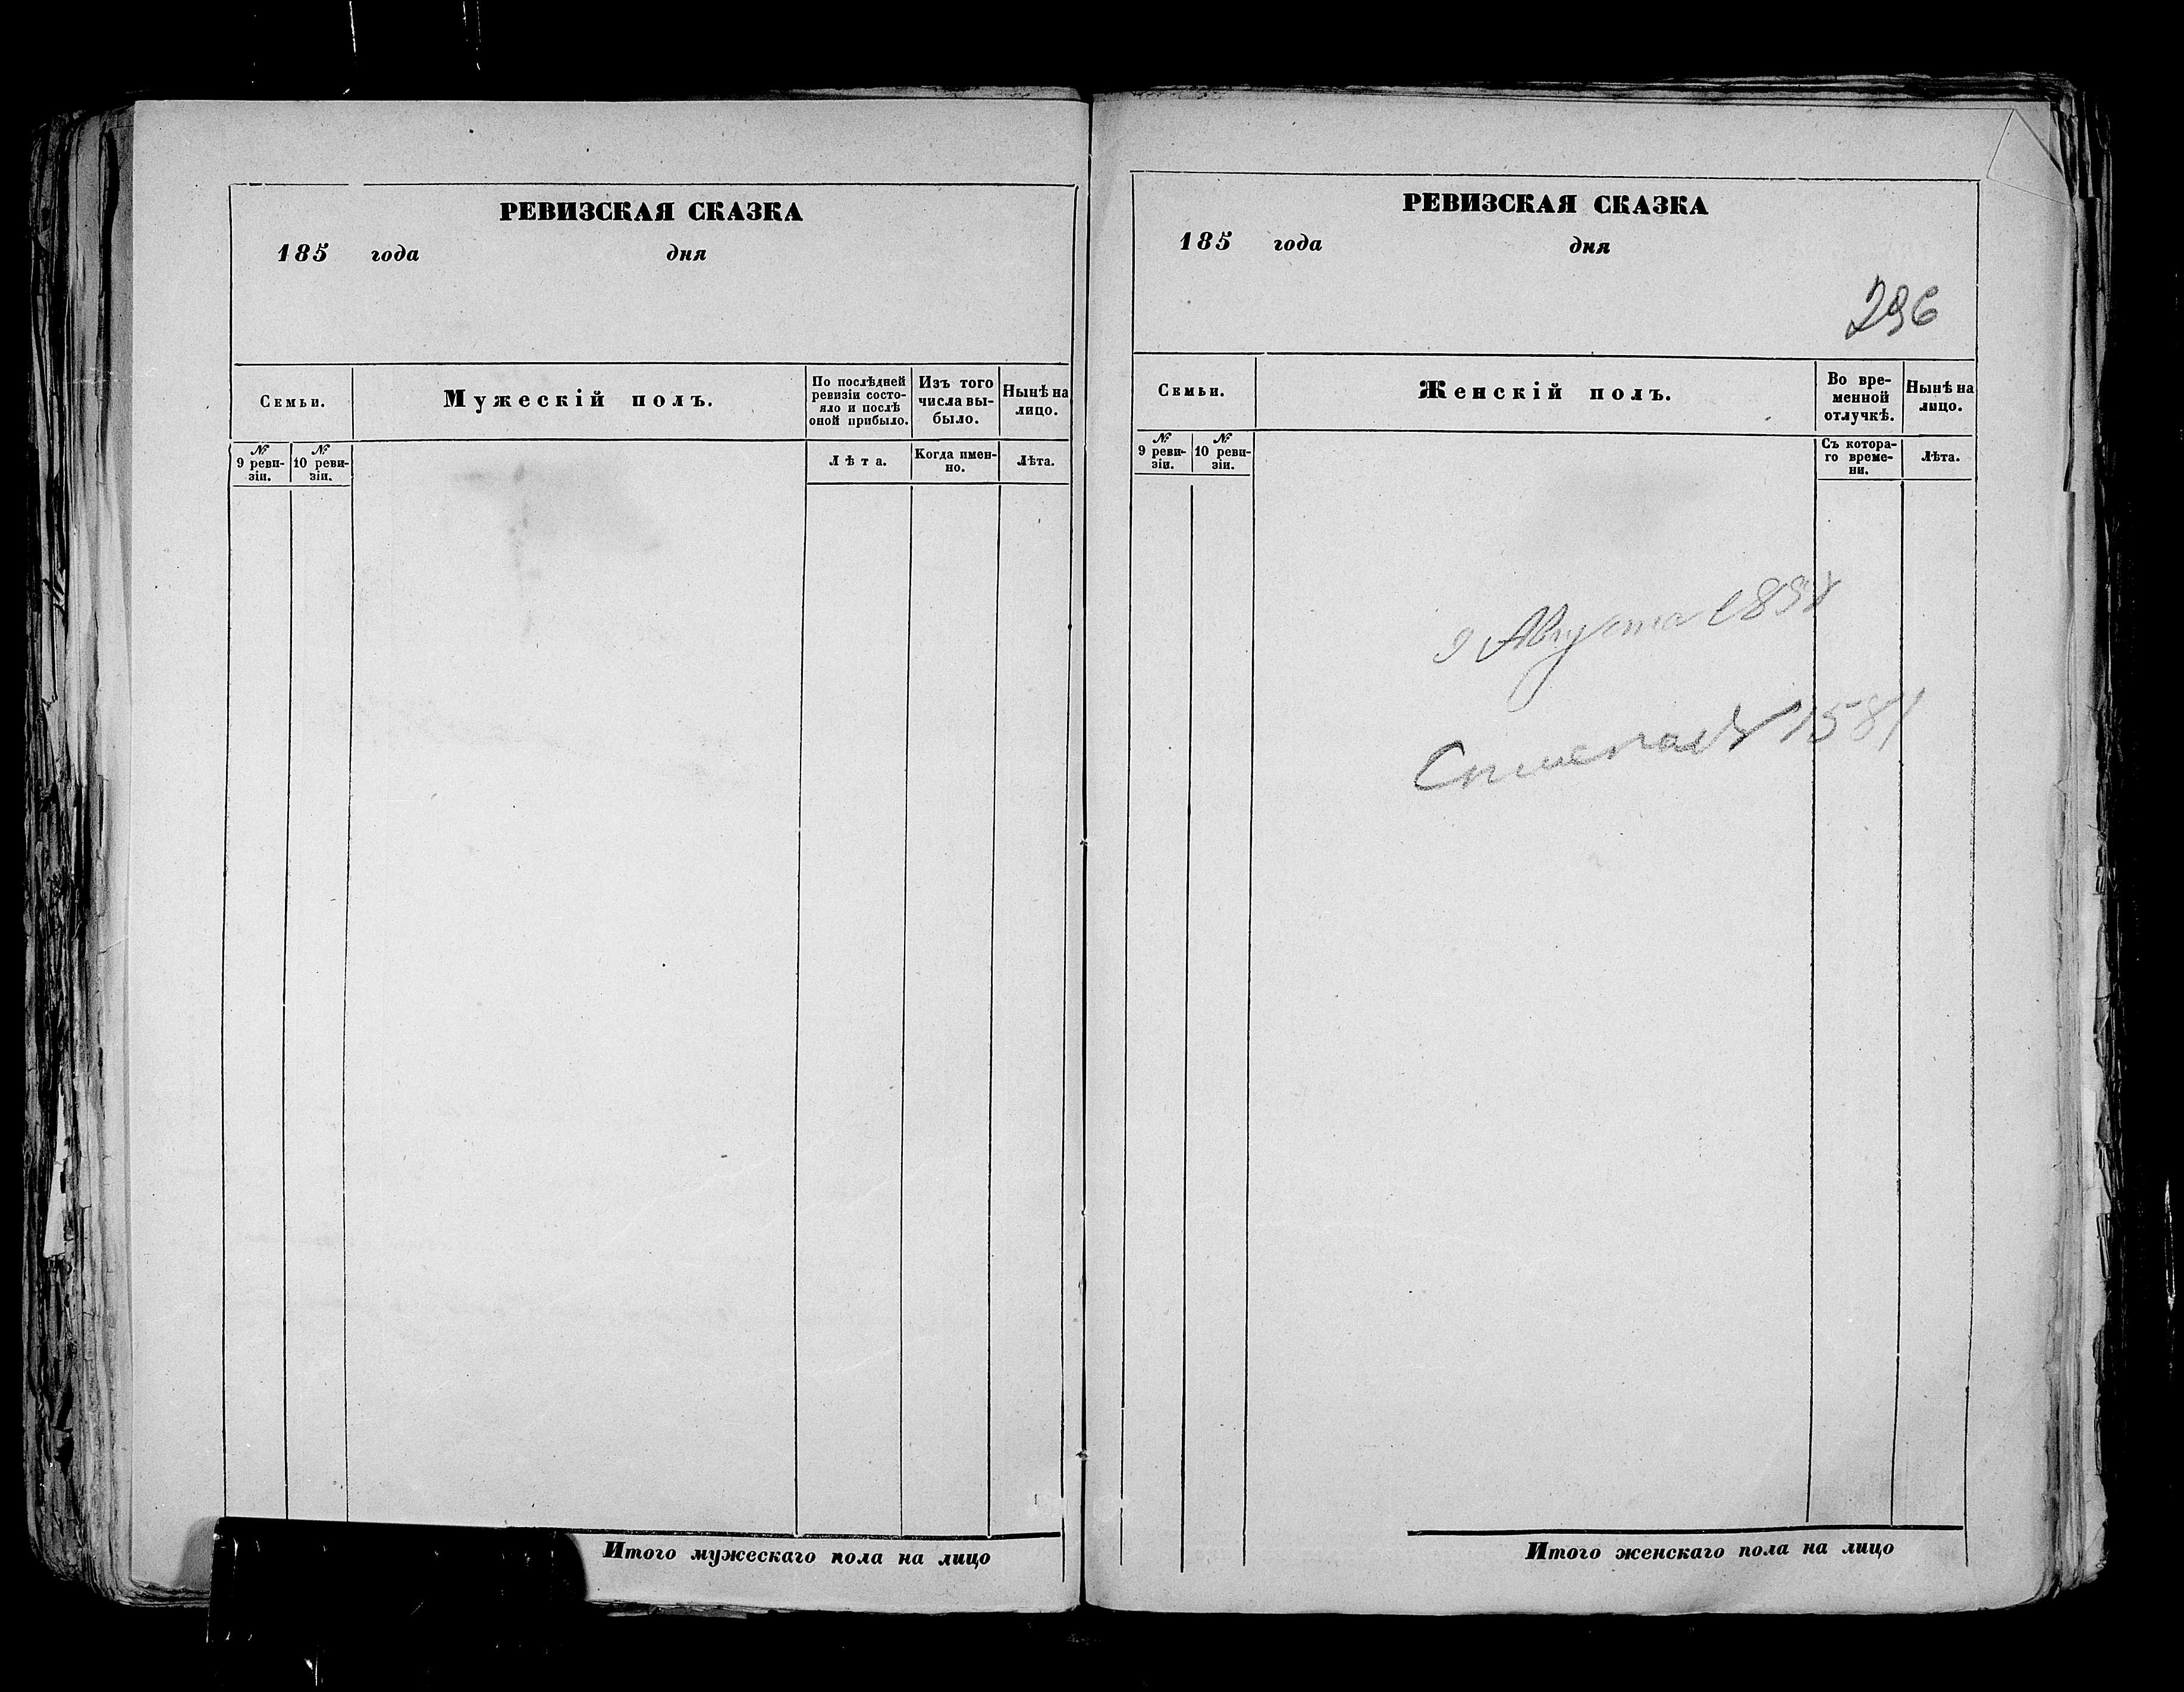 РЕВИЗСКАЯ СКАЗКА
185 года дня
Семьи.
Мужескій полъ.
По послѣдней
ревизіи состо-
яло и послѣ
оной прибыло.
Изъ того
числа вы-
было.
Нынѣ на
лицо.
№
9 реви-
зіи.
№
10 реви-
зіи.
Лѣта.
Когда имен-
но.
Лѣта.
Итого мужескаго пола на лицо
РЕВИЗСКАЯ СКАЗКА
185 года дня
296
Семьи.
Женскій полъ.
Во вре-
менной
отлучкѣ.
Нынѣ на
лицо.
№
9 реви-
зіи.
№
10 реви-
зіи.
Съ котора-
го време-
ни.
Лѣта.
9 Августа
Итого женскаго пола на лицо